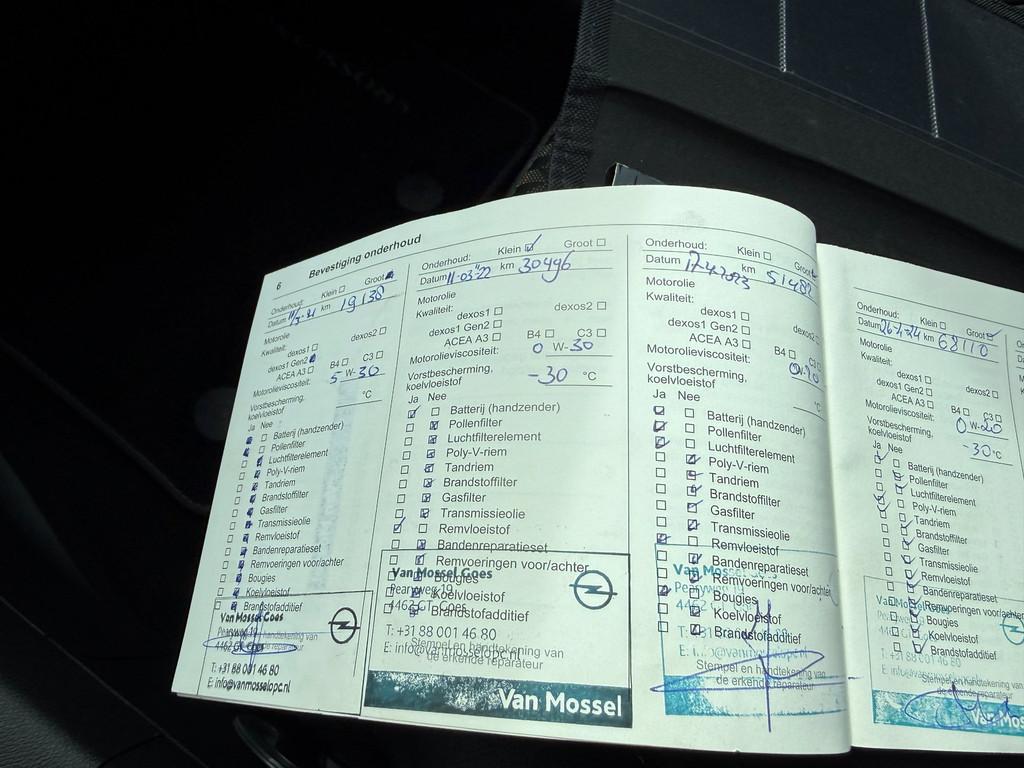 6 Bevestiging onderhoud
Onderhoud: Klein Groot
Datum 11/3-21 km 19138
Motorolie
Kwaliteit:
dexos1 dexos2
dexos1 Gen2
ACEA A3 B4 C3
Motorolieviscositeit: 5 W-30
Vorstbescherming,
koelvloeistof °C
Ja Nee
Batterij (handzender)
Pollenfilter
Luchtfilterelement
Poly-V-riem
Tandriem
Brandstoffilter
Gasfilter
Transmissieolie
Remvloeistof
Bandenreparatieset
Remvoeringen voor/achter
Bougies
Koelvloeistof
Brandstofadditief
Van Mossel Goes
Pearyweg 19
4462 GT Goes
Stempel en handtekening van
de erkende reparateur
T: +31 88 001 46 80
E: info@vanmosselopc.nl
Onderhoud: Klein Groot
Datum 11-03-'22 km 30496
Motorolie
Kwaliteit:
dexos1 dexos2
dexos1 Gen2
ACEA A3 B4 C3
Motorolieviscositeit: 0 W-30
Vorstbescherming,
koelvloeistof -30 °C
Ja Nee
Batterij (handzender)
Pollenfilter
Luchtfilterelement
Poly-V-riem
Tandriem
Brandstoffilter
Gasfilter
Transmissieolie
Remvloeistof
Bandenreparatieset
Remvoeringen voor/achter
Bougies
Koelvloeistof
Brandstofadditief
Van Mossel Goes
Pearyweg 19
4462 GT Goes
T: +31 88 001 46 80
Stempel en handtekening van
E: info@vanmosselopc.nl
de erkende reparateur
Van Mossel
Onderhoud: Klein Groot
Datum 17-4-2023 km
Motorolie
Kwaliteit:
dexos1
dexos1 Gen2 dexos2
ACEA A3 B4 C3
Motorolieviscositeit: 0W-20
Vorstbescherming,
koelvloeistof °C
Ja Nee
Batterij (handzender)
Pollenfilter
Luchtfilterelement
Poly-V-riem
Tandriem
Brandstoffilter
Gasfilter
Transmissieolie
Remvloeistof
Bandenreparatieset
Remvoeringen voor/achter
Bougies
Koelvloeistof
Brandstofadditief
Van Mossel
Pearyweg 19
4462
Stempel en handtekening van
de erkende reparateur
Onderhoud: Klein Groot
Datum 26-4-24 km 68110
Motorolie
Kwaliteit:
dexos1 dexos2
dexos1 Gen2
ACEA A3 B4 C3
Motorolieviscositeit: 0 W-20
Vorstbescherming,
koelvloeistof -30 °C
Ja Nee
Batterij (handzender)
Pollenfilter
Luchtfilterelement
Poly-V-riem
Tandriem
Brandstoffilter
Gasfilter
Transmissieolie
Remvloeistof
Bandenreparatieset
Remvoeringen voor/achter
Bougies
Koelvloeistof
Brandstofadditief
T: +31 88 001 46 80
Stempel en handtekening van
de erkende reparateur
Van Mos